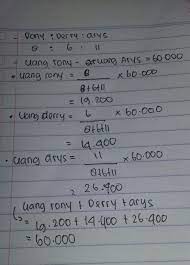 = Rony : Derry : Arys
8 : 6 : 11
- uang rony + uang Arys = 60.000
• uang rony = 8 × 60.000
8+6+11
= 19.200
• uang derry = 6 × 60.000
8+6+11
= 14.400
• uang arys = 11 × 60.000
8+6+11
= 26.400
uang rony + Derry + arys
= 19.200 + 14.400 + 26.400
= 60.000